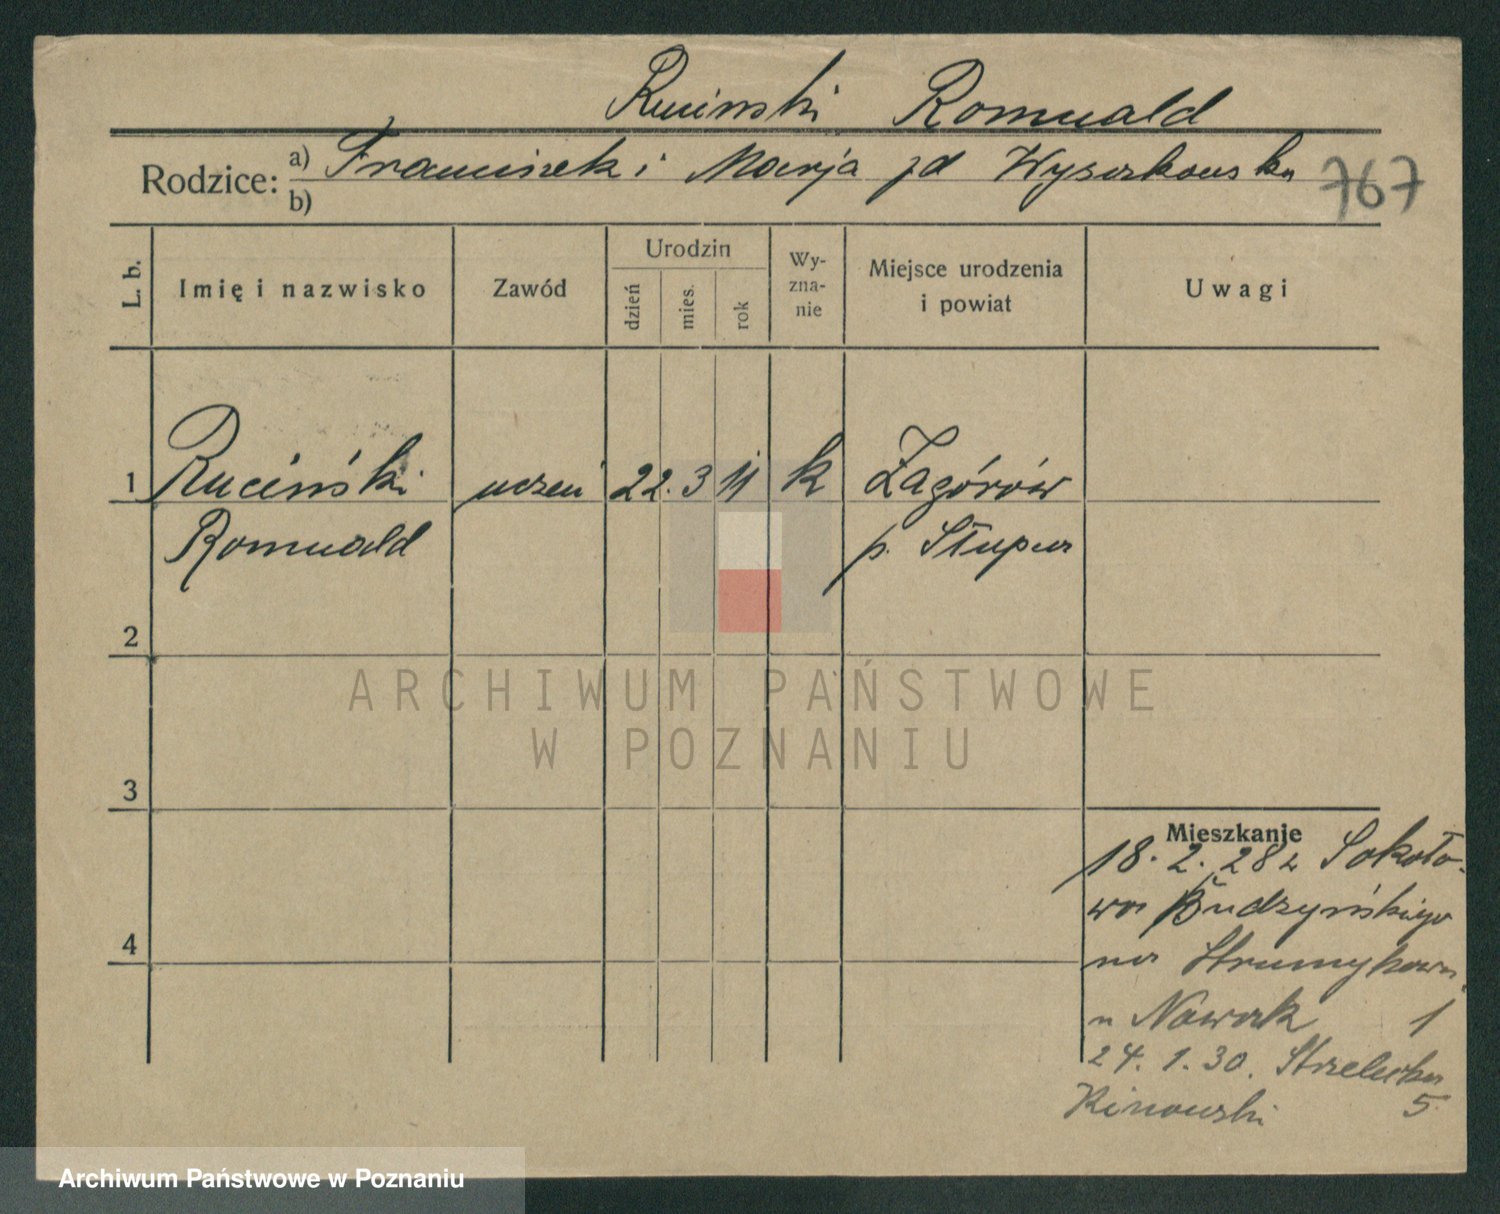 Ruciński Romuald
Rodzice: a) Franciszek i Marja zd Wyszkowska 767
b)
L. b. Imię i nazwisko Zawód Urodzin dzień mies. rok Wy-zna-nie Miejsce urodzenia i powiat Uwagi
1 Ruciński uczeń 22. 3 11 k Zagórów
Romuald p. Słupca
2
ARCHIWUM PAŃSTWOWE
W POZNANIU
3
Mieszkanie
18. 2. 28 z Sokoło-
wa Budzyńskiego
na Strumykowa
u Nowak 1
4
24. 1. 30. Strzelecka
5
Archiwum Państwowe w Poznaniu